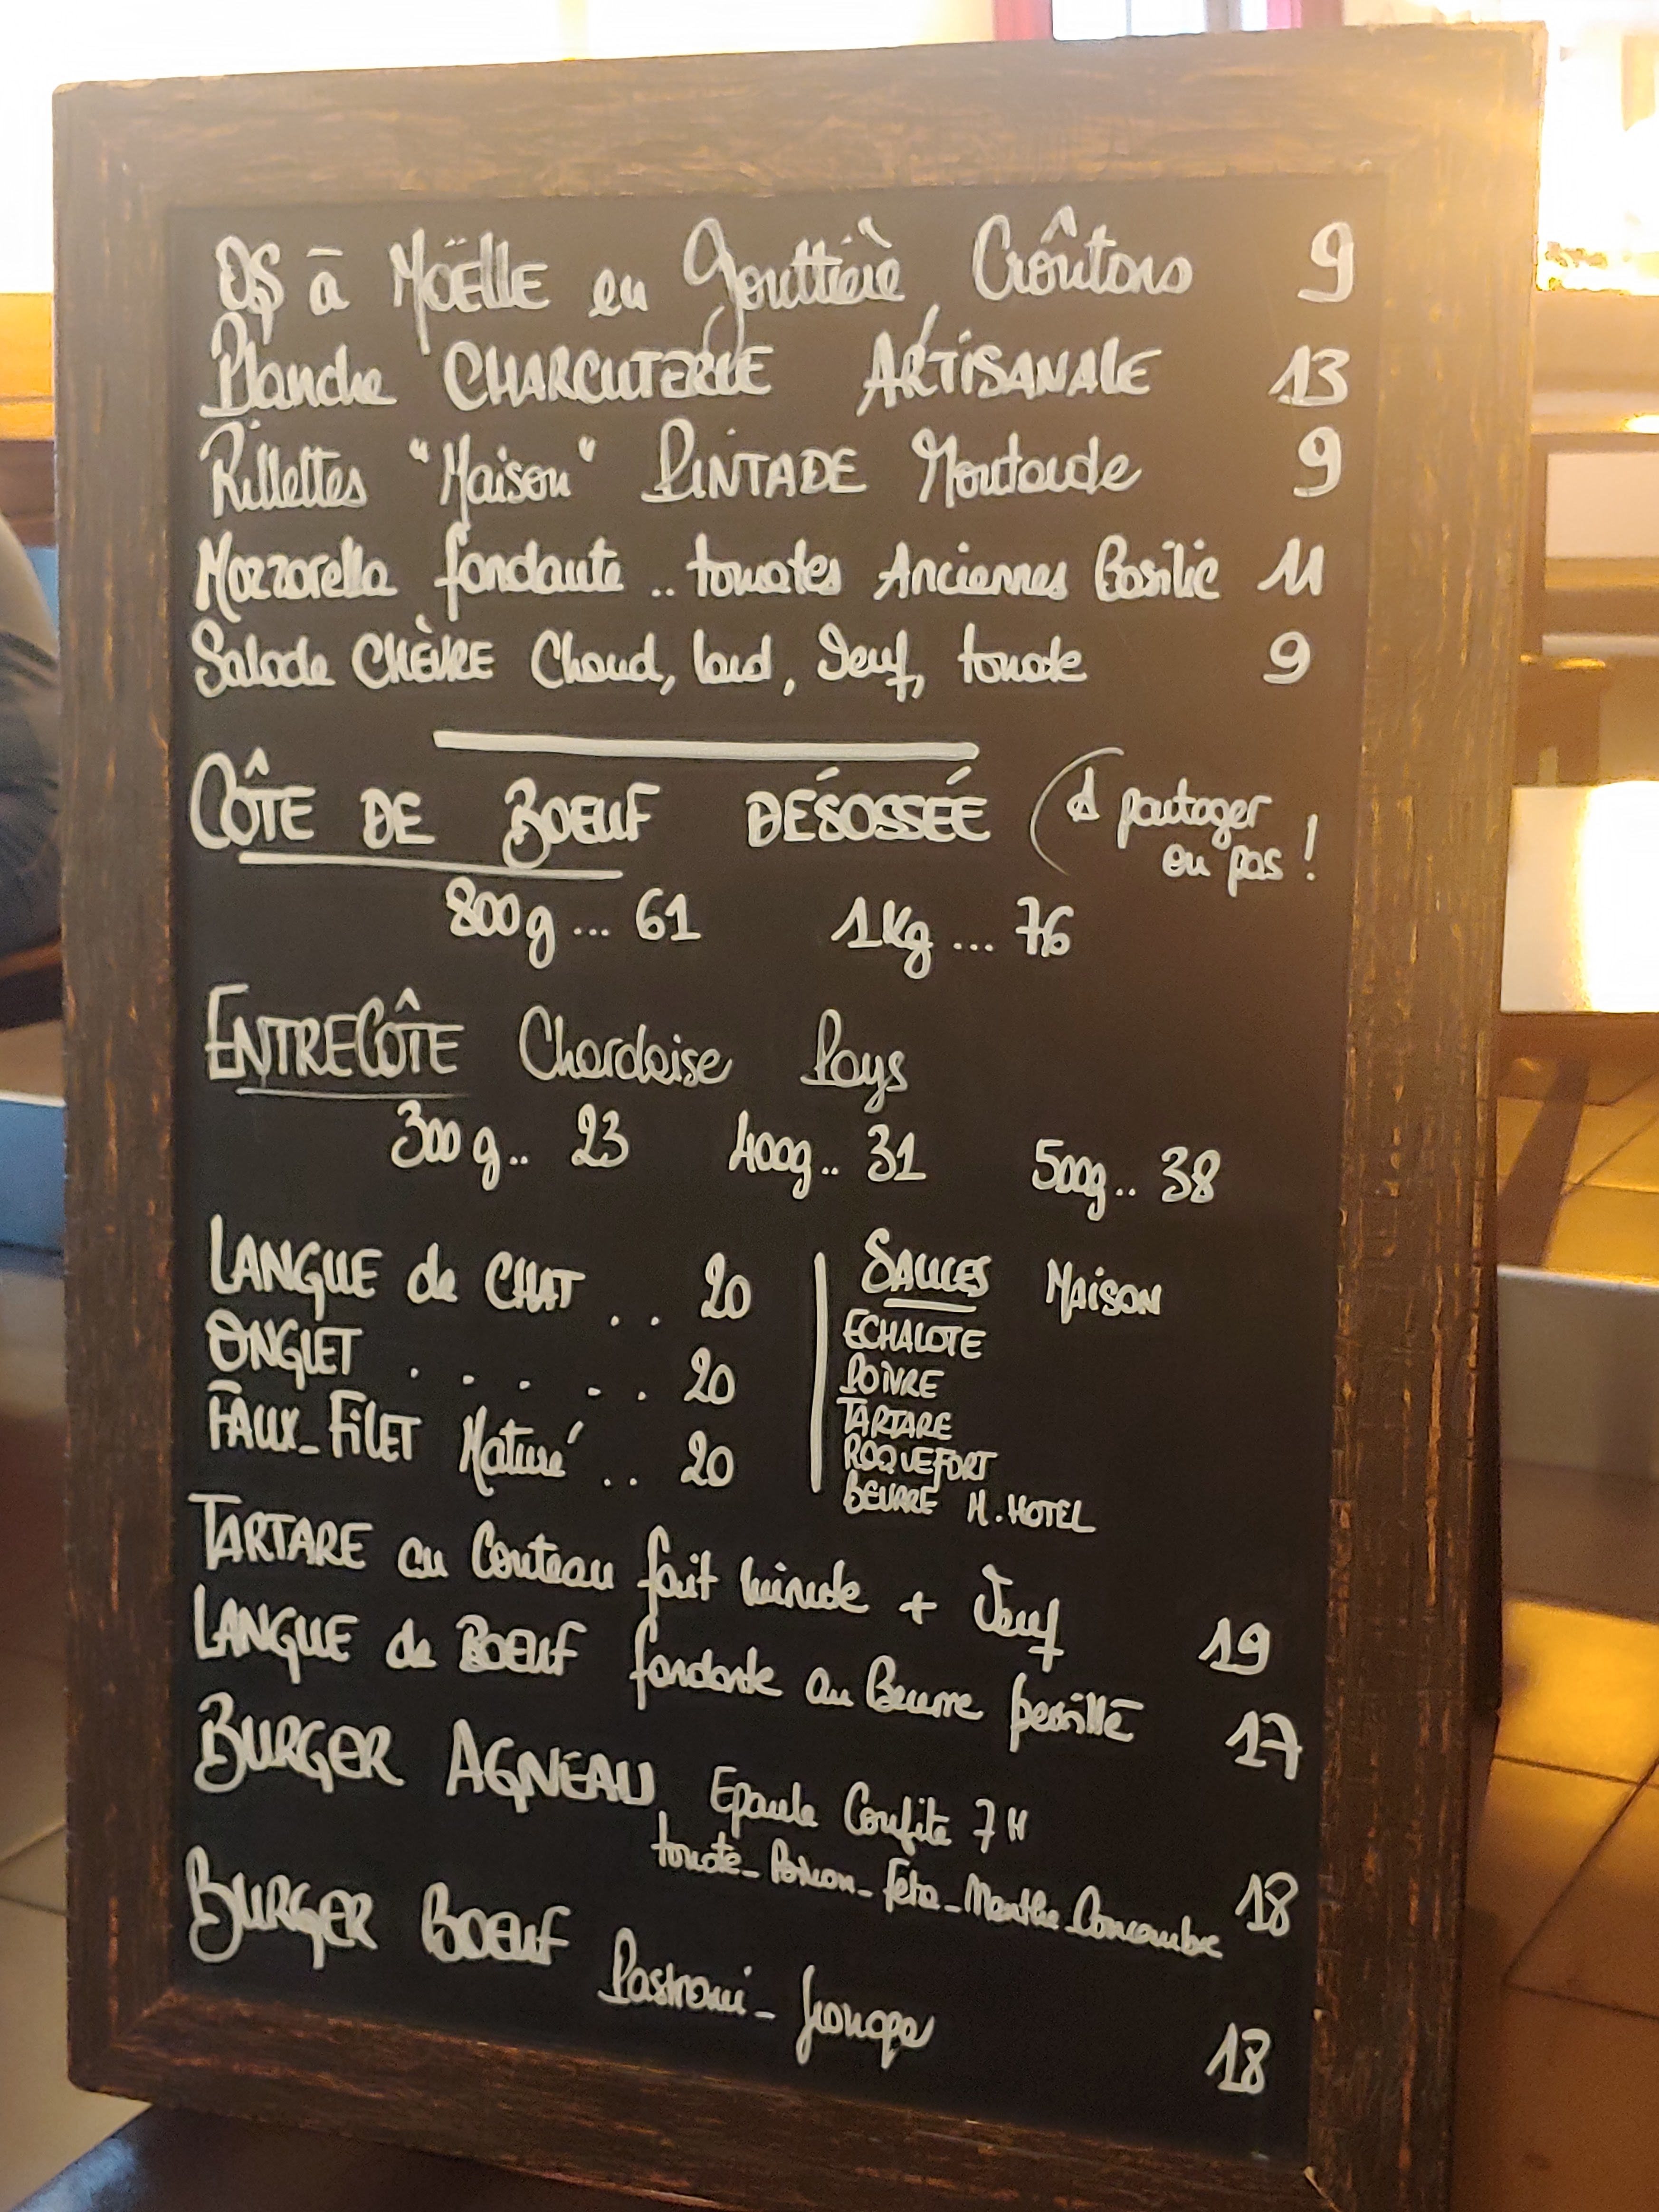 OS à MOËLLE en Gouttière, Croûtons 9
Planche CHARCUTERIE ARTISANALE 13
Rillettes "Maison" PINTADE Moutarde 9
Mozzarella fondante .. tomates Anciennes Basilic 11
Salade CHÈVRE Chaud, lard, Oeuf, tomate 9
CÔTE DE BOEUF DÉSOSSÉE (à partager
ou pas !
800g ... 61 1Kg ... 76
ENTRECÔTE Charolaise Pays
300g .. 23 400g .. 31 500g .. 38
LANGUE de CHAT .. 20
ONGLET ..... 20
FAUX-FILET Maturé .. 20
SAUCES MAISON
ECHALOTE
POIVRE
TARTARE
ROQUEFORT
BEURRE M.HOTEL
TARTARE au Couteau fait minute + Oeuf 19
LANGUE de BOEUF fondante au Beurre persillé 17
BURGER AGNEAU, Epaule Confite 7H
tomate - Poivron - Feta - Menthe - Concombre 18
BURGER BOEUF Pastrami - 18